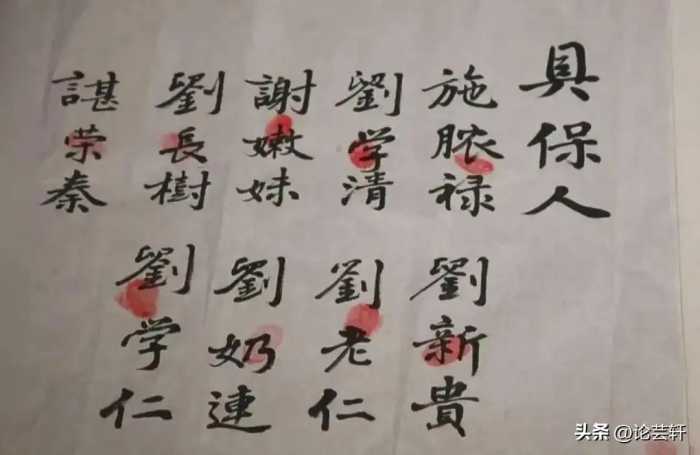 具保人
施脓禄
劉学清
謝嫩妹
劉長樹
諶荣秦
劉新貴
劉老仁
劉奶連
劉学仁
头条 @论芸轩